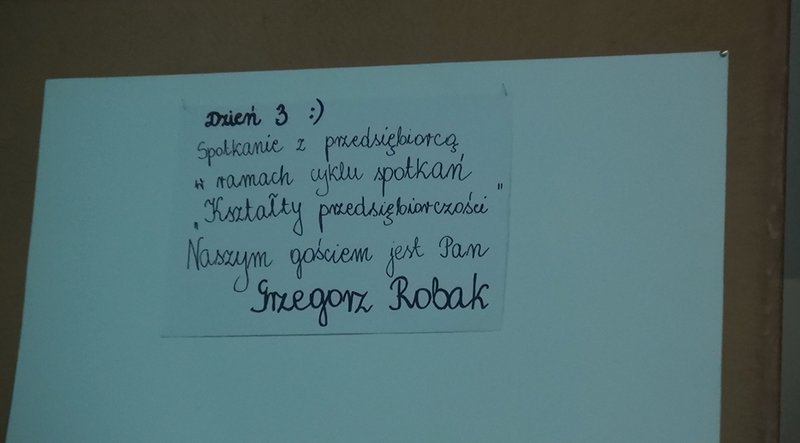 Dzień 3 :)
Spotkanie z przedsiębiorcą
w ramach cyklu spotkań
„Kształty przedsiębiorczości"
Naszym gościem jest Pan
Grzegorz Robak